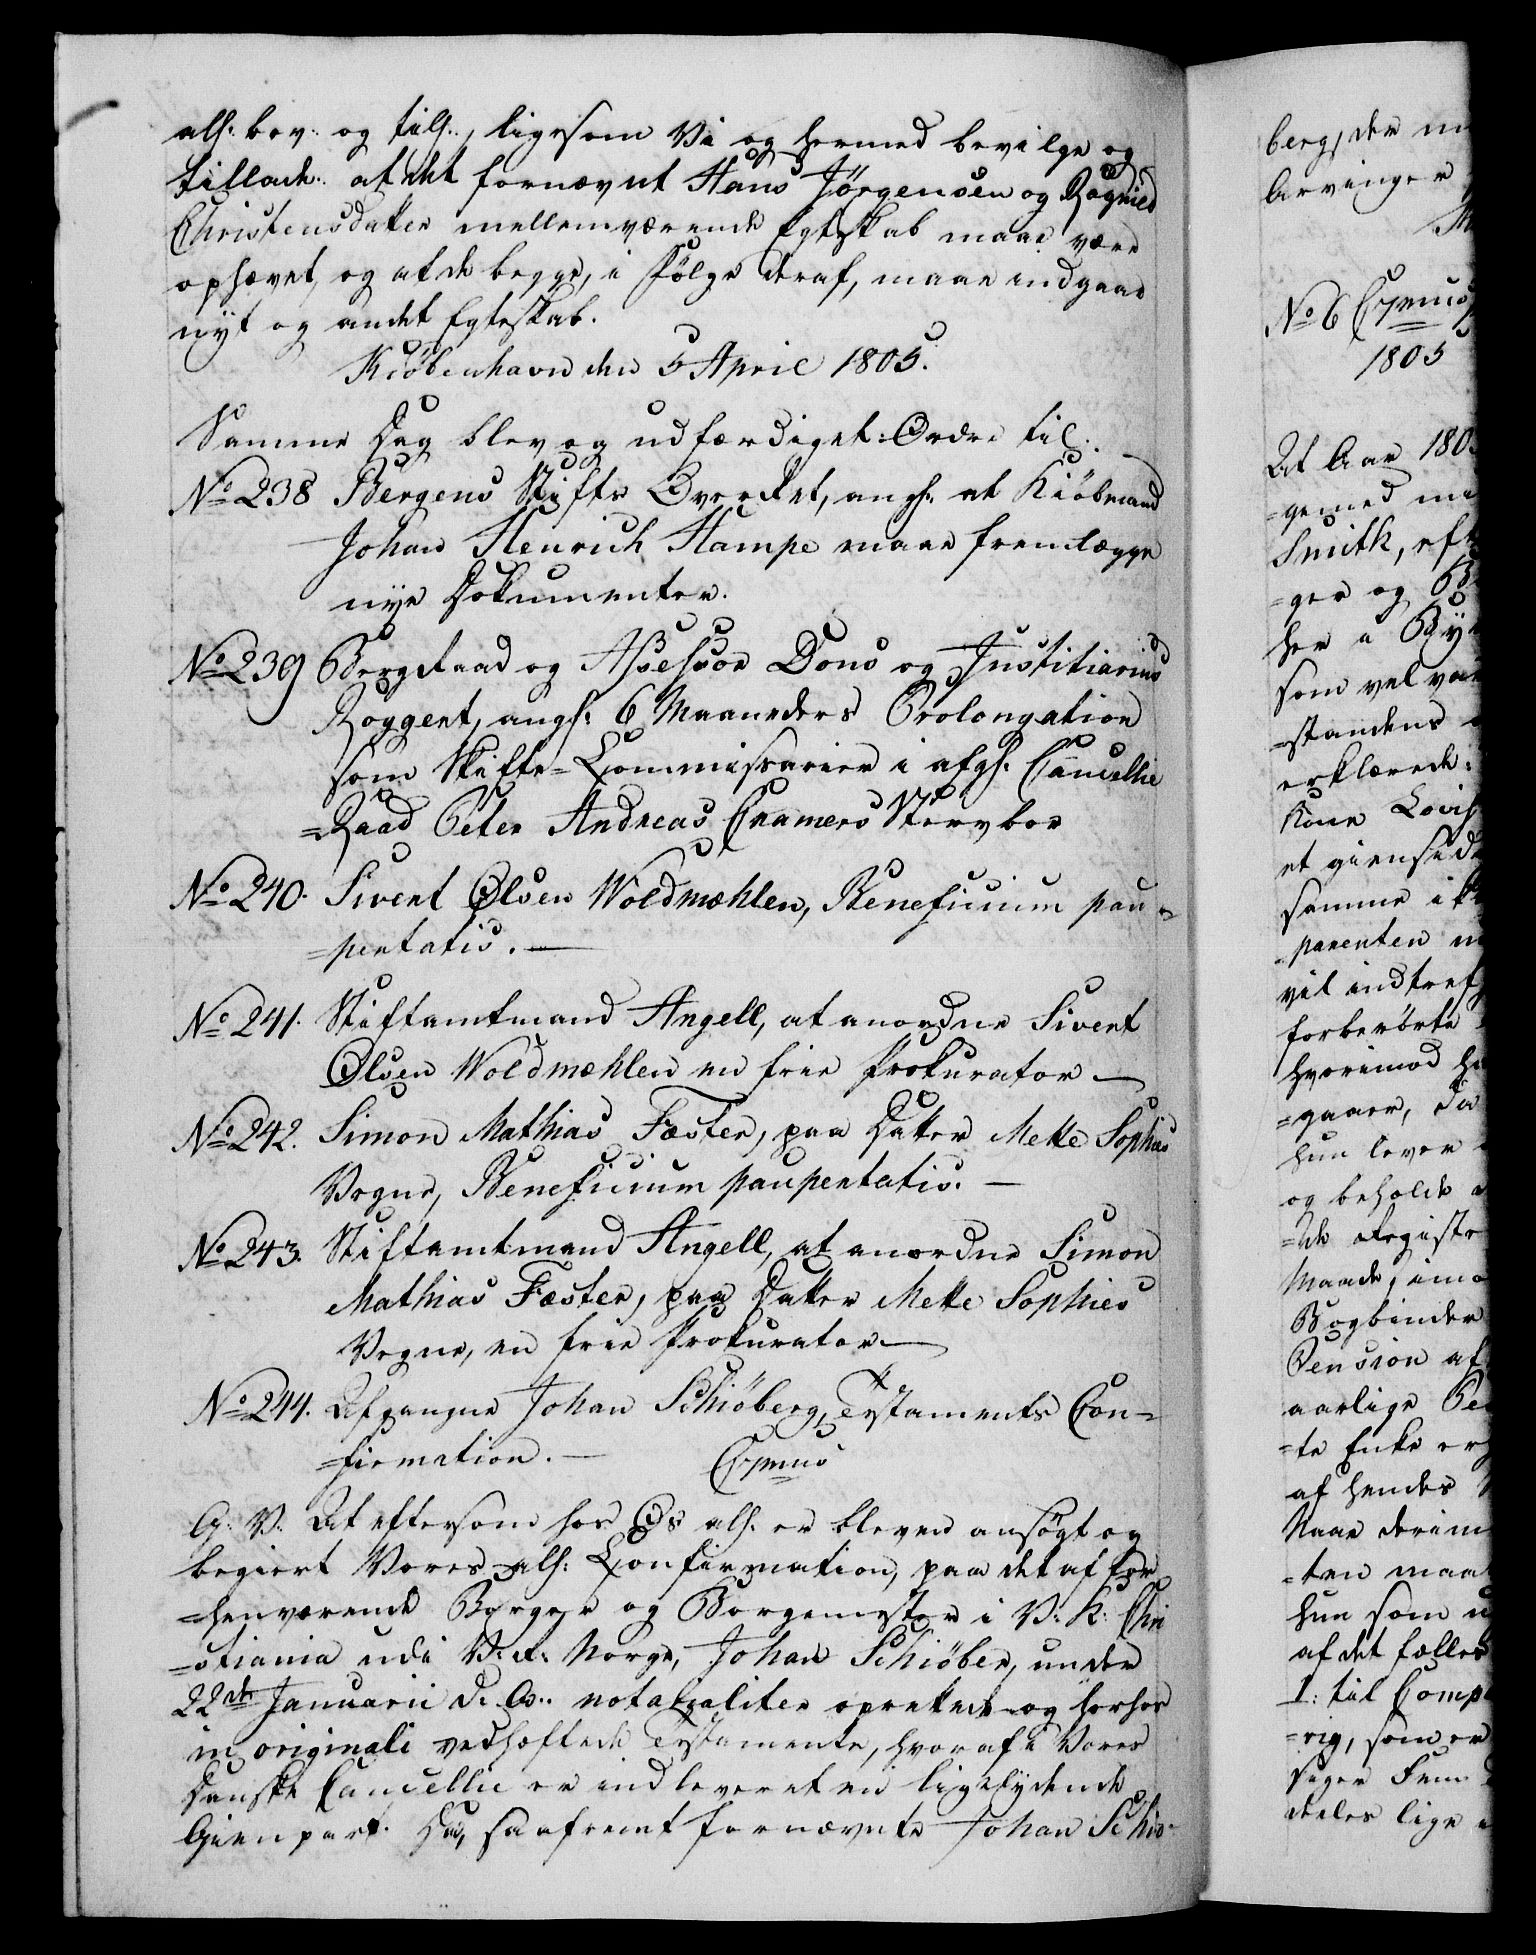 alh: bev: og till:, ligesom Vi og hermed bevilge og
tillade: at det fornævnt Hans Jörgensen og Ragnild
Christensdatter mellemværende Egteskab maae være
ophævet, og at de begge, i Følge deraf, maae indgaae
nyt og andet Egteskab.
Kiöbenhavn den 5 April 1805.
Samme Dag blev og udfærdiget: Ordre til.
No 238 Bergens Stifts Overret, angl: at Kiöbmand
Johan Henrich Hampe maae fremlægge
nye Dokumenter.
No 239 Bergraad og Assessor Dons og Justitiarius
Roggert, angl: 6 Maaneders Prolongation
som Skifte-Commissarier i afgl: Cancellie
=Raad Peter Andreas Cramers Stervboe
No 240. Sivert Olsen Woldmæhlen, Beneficium pau=
=pertatis. —
No 241. Stiftamtmand Angell, at anordne Sivert
Olsen Woldmæhlen en frie Prokurator —
No 242. Simon Mathias Fæster, paa Datter Mette Sophies
Vegne, Beneficium paupertatis. —
No 243. Stiftamtmand Angell, at anordne Simon
Mathias Fæster, paa Datter Mette Sophies
Vegne, en frie Prokurator —
No 244. Afgangne Johan Schiöberg, Testaments Con=
=firmation. — Expenus
G: V: At eftersom hos Os alh: er bleven ansögt og
begiert Vores alh: Confirmation, paa det af for
=henværende Borger og Borgemester i V: K: Chri
=stiania udi V: R: Norge, Johan Schiöber, under
22de Januarii d: A: notarialiter oprettede og herhos
in originali vedhæftede Testamente, hvoraf i Vores
Danske Cancellie er indleveret en ligelydende
Gienpart. Da, saafremt fornævnte Johan Schiö-
berg, der
Arvinger
No 6
1805
At Aar 180
=gemed
Smith, eft
=ger og
her a By
som vel
=standens
erklærede:
Kone Lovis
et giensid
samme i
=parenten
vil indtref
forberörte
hvorimod
=gaaer, da
hun lever
og beholde
=de Registr
Maade, imo
Bogbinder
Pension af
aarlige Pe
=te Enke er
af hendes
Naar derim
=ten maa
hun som
af det fælles
1: til Comp
=rig, som er
siger Fem
deeles lige